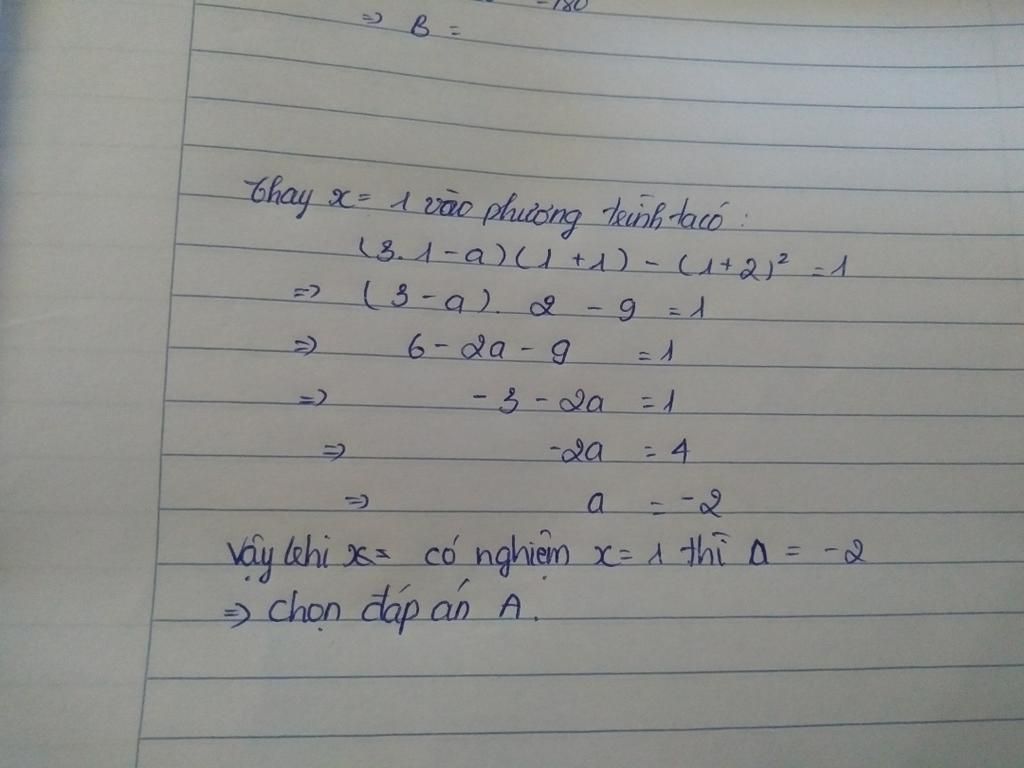 -180
=> B =
Thay x = 1 vào phương trình ta có :
(3.1-a)(1+1) - (1+2)² = 1
=> (3-a). 2 - 9 = 1
=> 6 - 2a - 9 = 1
=> -3 - 2a = 1
=> -2a = 4
=> a = -2
Vậy khi x= có nghiệm x = 1 thì a = -2
=> chọn đáp án A.